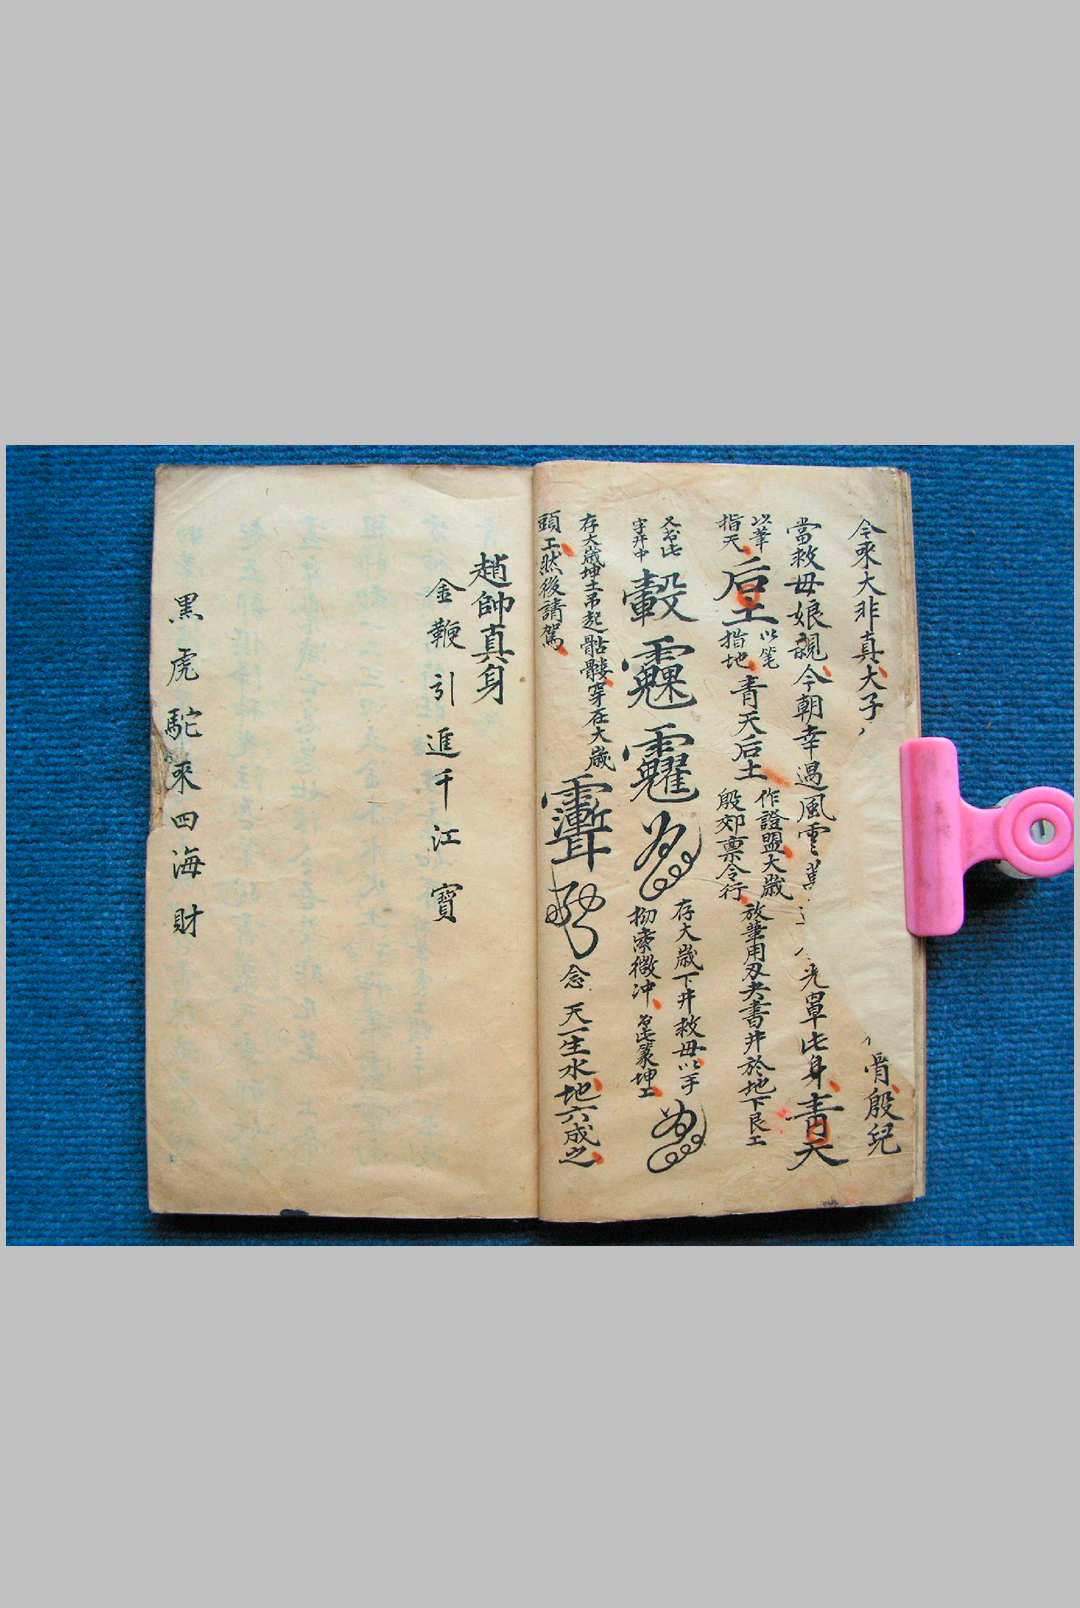 令來大非真太子
骨殷兒
當救母娘親今朝幸遇風雲
光罩此身青天
以筆
指天
后土
以笔
指地
青天后土
作證盟大歲
殷郊稟令行
放筆用刃夬書井於地下艮工
又书此
字井中
存大歲下井救母以手
存大歲坤土吊起骷髏穿在大歲
頭上然後請駕
念
天一生水地六成之
趙帥真身
金鞭引進千江寶
黑虎駝來四海財